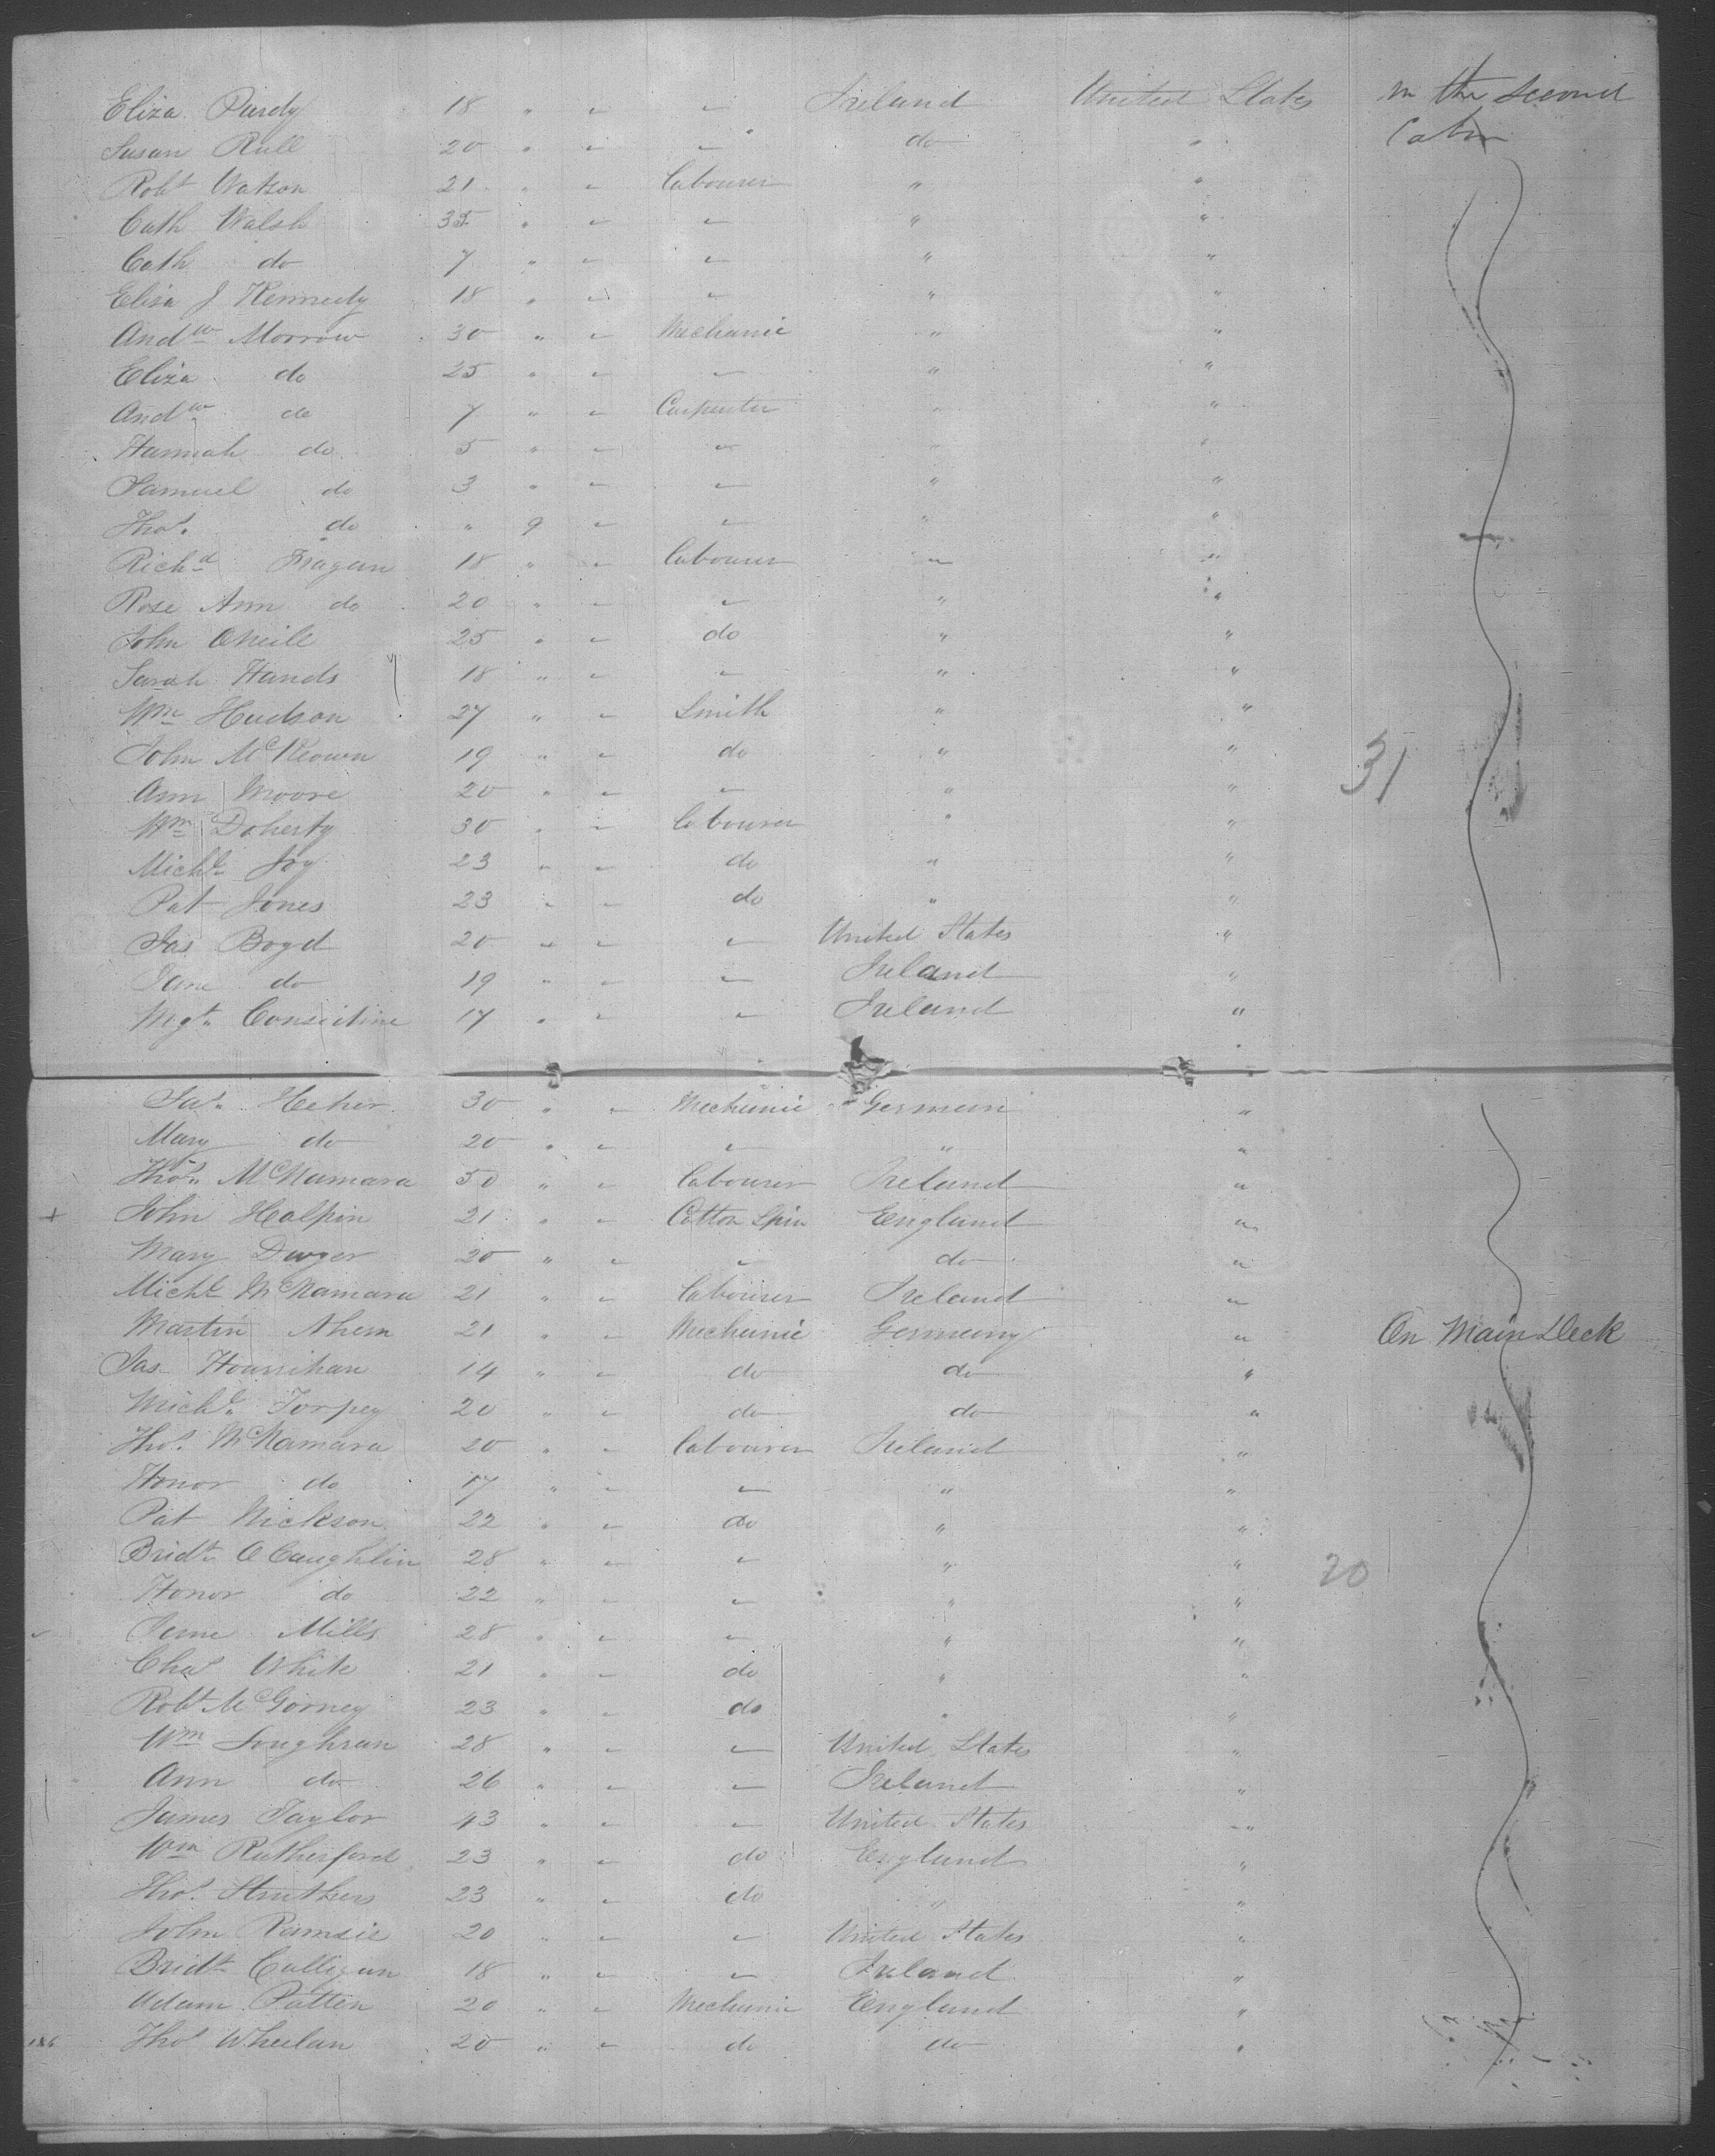 Eliza Purdy 18 " " " Ireland United States in the second
Cabin
Susan Rull 20 " " " do "
Robt Watson 21 " " Labourer " "
Cath Walsh 35 " " " " "
Cath do 7 " " " " "
Eliza J Kennedy 18 " " " " "
Andw Morrow 30 " " Mechanic " "
Eliza do 25 " " " " "
Andw do 7 " " Carpenter " "
Hannah do 5 " " " " "
Samuel do 3 " " " " "
Thos. do " 9 " " " "
Richd Fragan 18 " " Labourer " "
Rose Ann do 20 " " " " "
John ONeill 25 " " do " "
Sarah Hands 18 " " " " "
Wm Hudson 27 " " Smith " "
John McKeown 19 " " do " " 31
Ann Moore 20 " " " " "
Wm Doherty 30 " " Labourer " "
Michl Joy 23 " " do " "
Pat Jones 23 " " do " "
Jas Boyd 20 " " " United States "
Jane do 19 " " " Ireland "
Mgt. Considine 17 " " " Ireland "
Jas. Heher 30 " " Mechanic German "
Mary do 20 " " " " "
Thos. McNamara 50 " " Labourer Ireland "
+ John Halpin 21 " " Cotton Spin England "
Mary Dwyer 20 " " " do "
Michl McNamara 21 " " Labourer Ireland "
Martin Ahern 21 " " Mechanic Germany " On Main Deck
Jas Hourrihan 14 " " do do "
Michl. Torpey 20 " " do do "
Thos. McNamara 20 " " Labourer Ireland "
Honor do 17 " " " " "
Pat Nickson 22 " " do " "
Bridt OCaughlin 28 " " " " " 20
Honor do 22 " " " " "
Jane Mills 28 " " " " "
Chas White 21 " " do " "
Robt McGorney 23 " " do " "
Wm Loughran 28 " " " United States "
Ann do 26 " " " Ireland "
James Taylor 43 " " " United States "
Wm Rutherford 23 " " do England "
Thos. Struthers 23 " " do " "
John Ramsie 20 " " " United States "
Bridt Culligan 18 " " " Ireland "
Adam Patten 20 " " Mechanic England "
Thos Wheelan 20 " " do do "